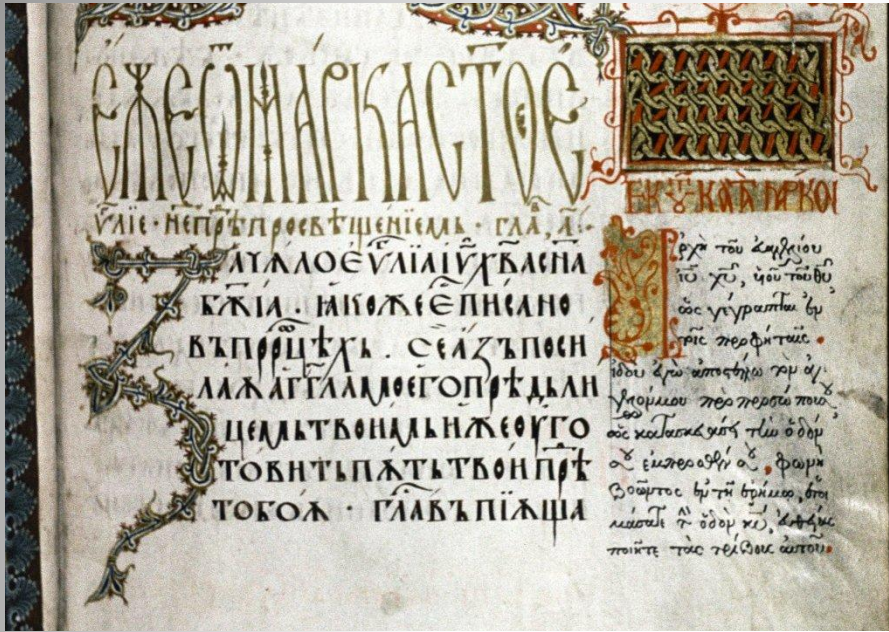 ЕЖЕ Ѿ МАРКА СТ҃ОЕ
ѴⷢЛІЕ · НЕ ПРѢ ПРОСВѢЩЕНІЕМЬ · ГЛАⷡ, А҃ :
ЗАЧѦЛО ЕѴ҃ЛІА ІѴ҃ ХВ҃А СН҃А
БЖ҃ІА · ꙖКОЖЕ Е҃ ПИСАНО
ВЪ ПРⷪРЦѢХЬ . СЕ АЗЪ ПОСИ
ЛАѪ АГГ҃ЛА МОЕГО ПРѢДЬ ЛИ
ЦЕМЬ ТВОИМЬ ИЖЕ ОУГО
ТОВИТЬ ПѪТЬ ТВОИ ПРѢ
ТОБОѪ · ГЛА҃ВЪПІѪЩА
ἐκ τοῦ κατὰ Μάρκον
Ἀρχὴ τοῦ εὐαγγελίου
ἰῦ χῦ, υἱοῦ τοῦ θυ
ὡς γέγραπται ἐν
τοῖς προφήταις.
ἰδοὺ ἐγὼ ἀποστέλλω τὸν ἄγ
γελόν μου πρὸ προσώπου σου
ὃς κατασκευάσει τὴν ὁδόν
σου ἔμπροσθέν σου. φωνὴ
βοῶντος ἐν τῇ ἐρήμῳ, ἑτοι
μάσατε τὴν ὁδὸν κυ, εὐθείας
ποιεῖτε τὰς τρίβους αὐτοῦ.